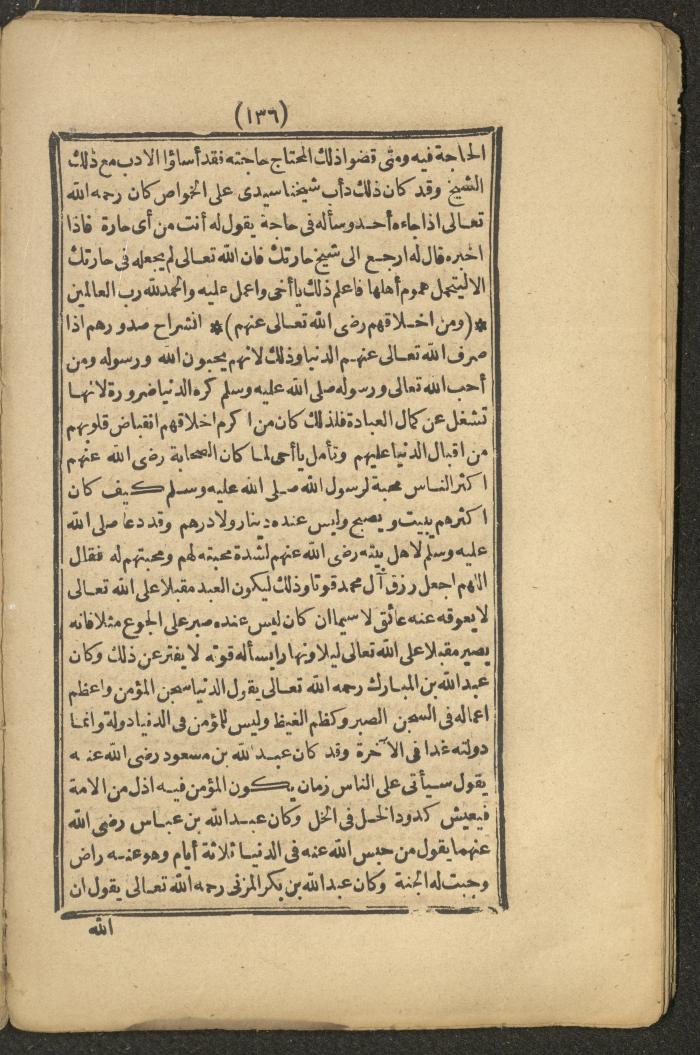 (١٣٦)
الحاجة فيه ومتى قضوا ذلك المحتاج حاجته فقد أساؤا الادب مع ذلك
الشيخ وقد كان ذلك دأب شيخنا سيدى على الخواص كان رحمه الله
تعالى اذا جاءه أحد وسأله فى حاجة يقول له أنت من أى حارة فاذا
اخبره قال له ارجع الى شيخ حارتك فان الله تعالى لم يجعله فى حارتك
الا ليتحمل هموم أهلها فاعلم ذلك يا أخى واعمل عليه والحمد لله رب العالمين
*(ومن اخلاقهم رضى الله تعالى عنهم)* انشراح صدورهم اذا
صرف الله تعالى عنهم الدنيا وذلك لانهم يحبون الله ورسوله ومن
أحب الله تعالى ورسوله صلى الله عليه وسلم كره الدنيا ضرورة لانها
تشغل عن كمال العبادة فلذلك كان من اكرم اخلاقهم انقباض قلوبهم
من اقبال الدنيا عليهم وتأمل يا أخى لما كان الصحابة رضى الله عنهم
اكثر الناس محبة لرسول الله صلى الله عليه وسلم كيف كان
اكثرهم يبيت ويصبح وليس عنده دينار ولا درهم وقد دعا صلى الله
عليه وسلم لاهل بيته رضى الله عنهم لشدة محبته لهم ومحبتهم له فقال
اللهم اجعل رزق آل محمد قوتا وذلك ليكون العبد مقبلا على الله تعالى
لا يعوقه عنه عائق لا سيما ان كان ليس عنده صبر على الجوع مثلا فانه
يصير مقبلا على الله تعالى ليلا ونهارا يسأله قوته لا يفتر عن ذلك وكان
عبد الله بن المبارك رحمه الله تعالى يقول الدنيا سجن المؤمن واعظم
اعماله فى السجن الصبر وكظم الغيظ وليس للمؤمن فى الدنيا دولة وانما
دولته غدا فى الآخرة وقد كان عبد الله بن مسعود رضى الله عنه
يقول سيأتى على الناس زمان يكون المؤمن فيه اذل من الامة
فيعيش كدود الخل فى الخل وكان عبد الله بن عباس رضى الله
عنهما يقول من حبس الله عنه فى الدنيا ثلاثة أيام وهو عنه راض
وجبت له الجنة وكان عبد الله بن بكر المزنى رحمه الله تعالى يقول ان
الله